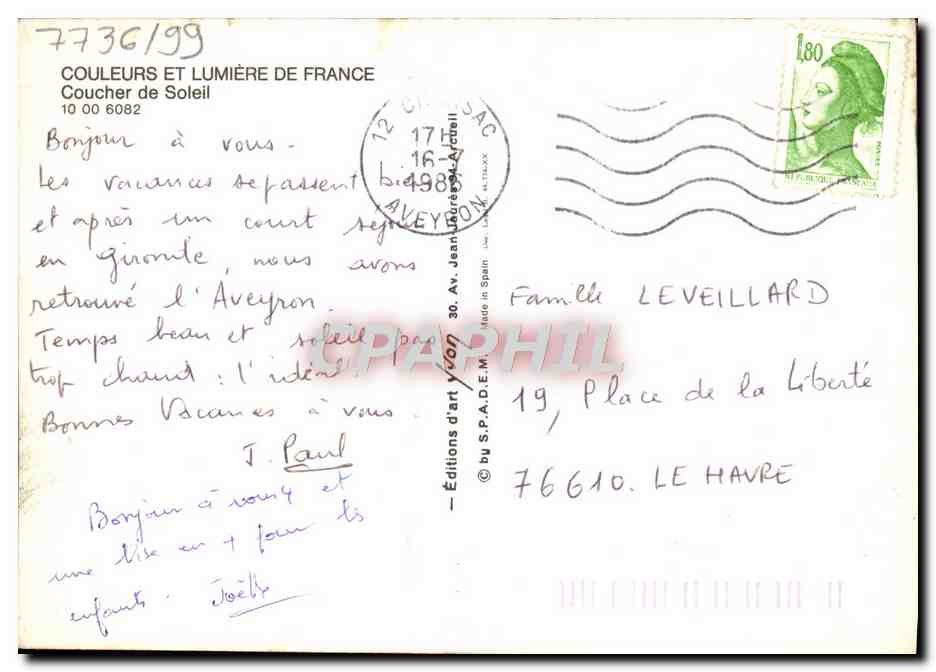 7736/99
COULEURS ET LUMIÈRE DE FRANCE
Coucher de Soleil
10 00 6082
Bonjour à vous -
Les vacances se passent bien
et après un court séjour
en Gironde, nous avons
retrouvé l'Aveyron.
Temps beau et soleil pas
trop chaud : l'idéal.
Bonnes Vacances à vous.
J. Paul
Bonjour à vous 4 et
une bise en + pour les
enfants. Joëlle
12
17H
16-7
AVEYRON
1,80
RÉPUBLIQUE FRANÇAISE
— Éditions d'art yvon 30. Av. Jean-Jaurès 94-Arcueil
© by S.P.A.D.E.M. Made in Spain
Famille LEVEILLARD
19, Place de la Liberté
76610. LE HAVRE
CPAPHIL